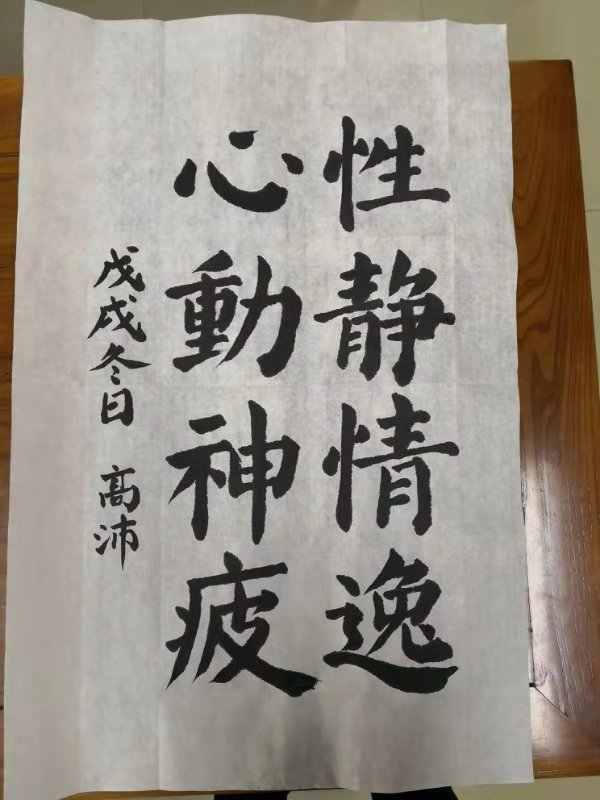 性静情逸
心動神疲
戊戌冬日 高沛